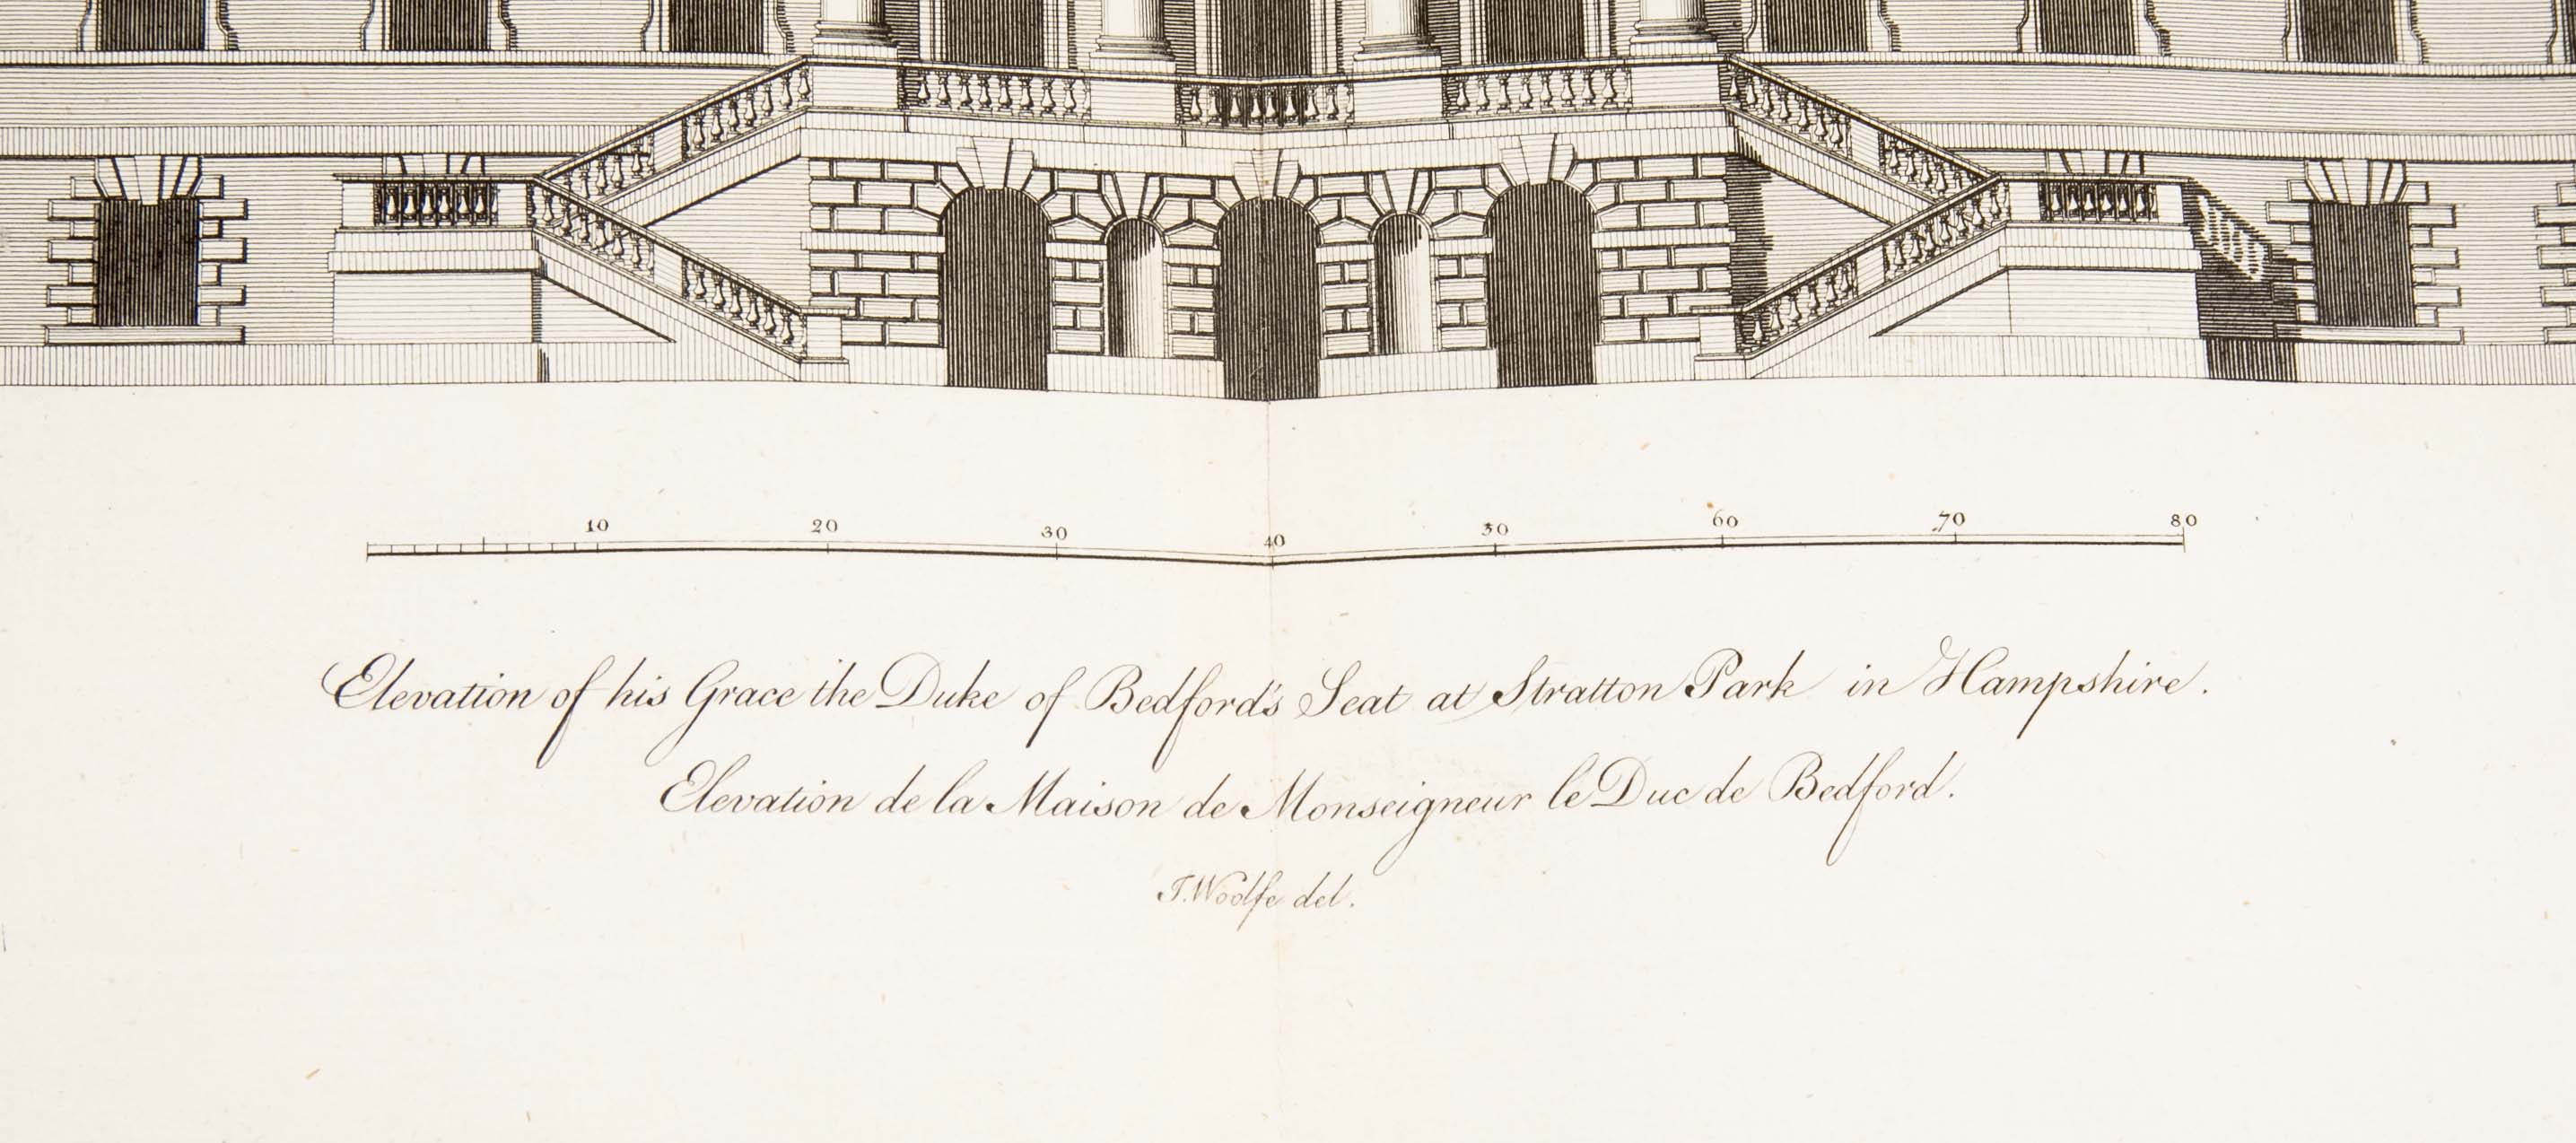 10 20 30 40 50 60 70 80
Elevation of his Grace the Duke of Bedford's Seat at Stratton Park in Hampshire.
Elevation de la Maison de Monseigneur le Duc de Bedford.
J. Woolfe del.